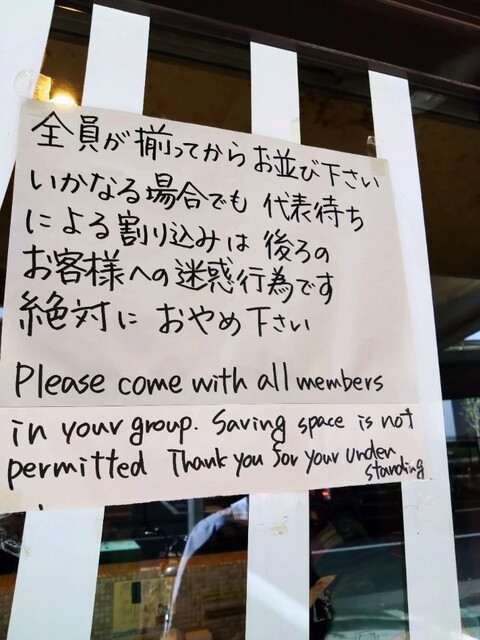 全員が揃ってからお並び下さい
いかなる場合でも 代表待ち
による割り込みは 後ろの
お客様への迷惑行為です
絶対に おやめ下さい
Please come with all members
in your group. Saving space is not
permitted Thank you for your under
standing